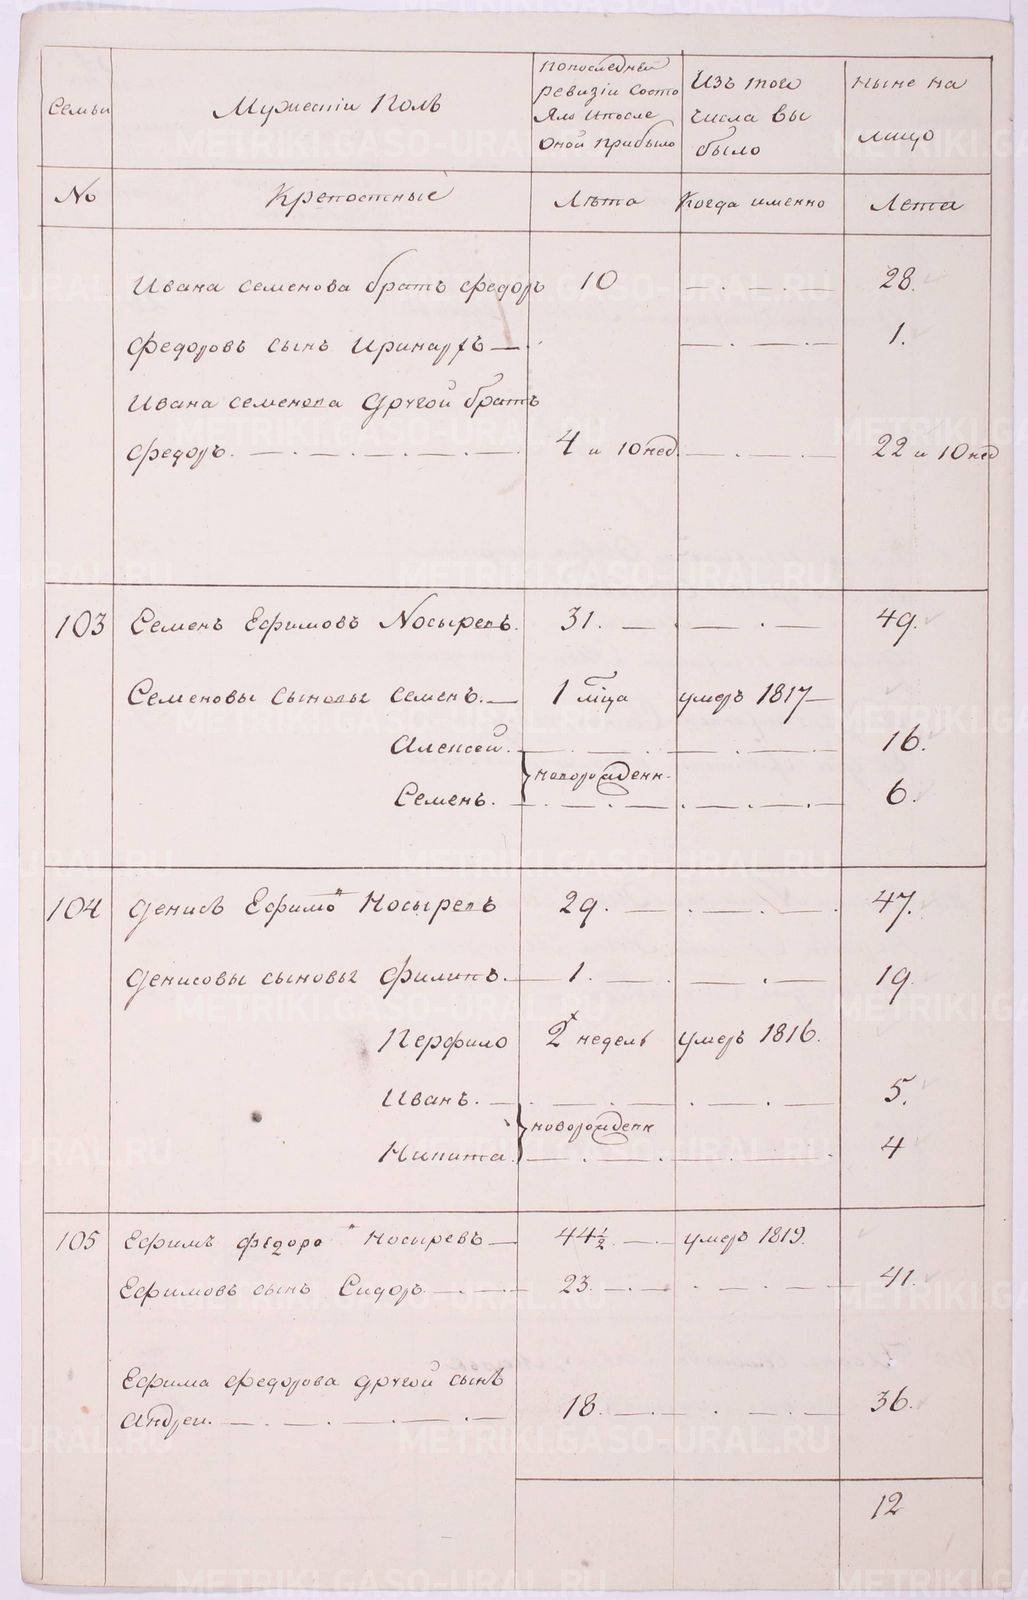 Семьи
Мужескіи Полъ
Попоследней
ревизіи Состо
Яло ипосле
Оной прибыло
Изъ того
числа вы
было
ныне на
лицо
No
Крепостные
Лѣта
Когда именно
Лета
Ивана семенова братъ федоръ 10 — . — . — 28.
федоровъ сынъ Иринархъ — — . — . — 1.
Ивана семенова другой братъ
федоръ. — . — . — . — 4 и 10 нед. — . — . — 22 и 10 нед
103 Семенъ Ефимовъ Носыревъ. 31. — . — . — 49.
Семеновы сыновьг семенъ. — 1 мца умеръ 1817 —
Алексей. — . — . — 16.
новорожденн.
Семенъ. — . — . — 6.
104 денисъ Ефимо въ Носыревъ 29. — . — . 47.
денисовы сыновьг филипъ. — 1. — . — 19
Перфило 2х недель умеръ 1816.
Иванъ. — . — . — 5.
новорожденн
Никита. — . — . — 4
105 Ефимъ федоро въ Носыревъ — 44½. — . — умеръ 1819.
Ефимовъ сынъ Сидоръ. — . — 23. — . — 41.
Ефима федорова другой сынъ
Андреи. — . — . — 18. — . — . — 36.
12
METRIKI.GASO-URAL.RU